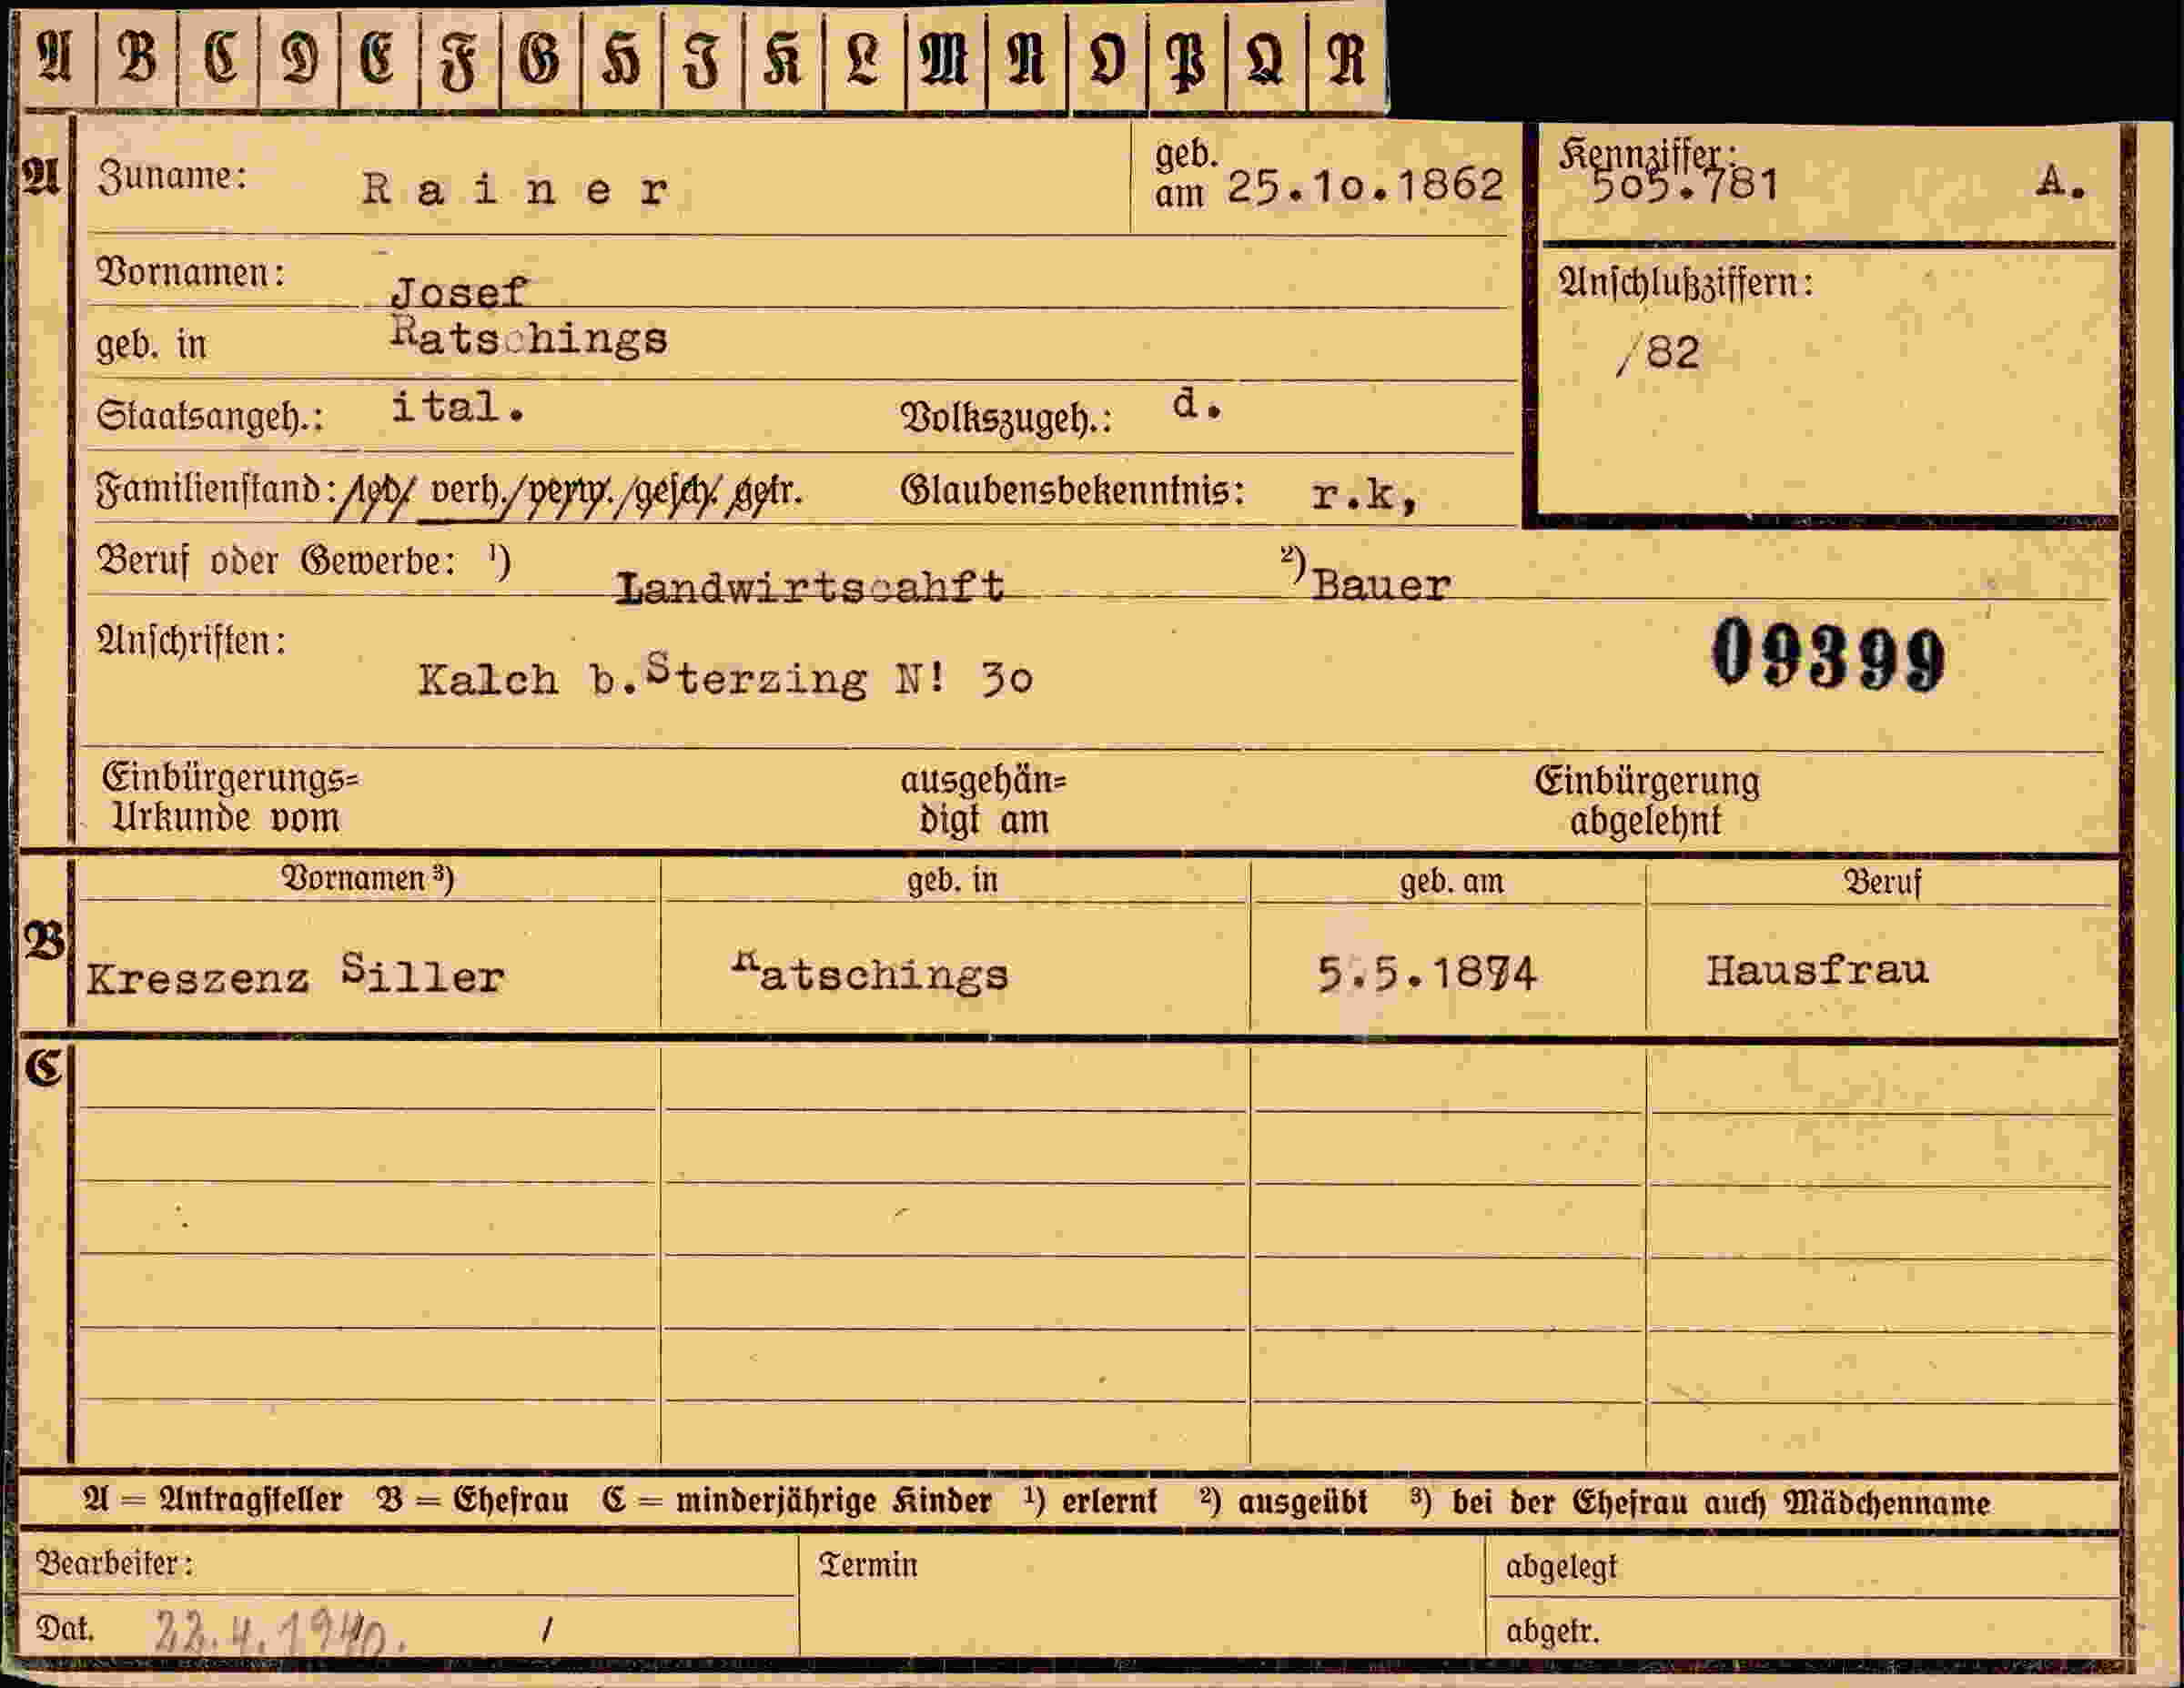 A B C D E F G H I K L M N O P Q R
A Zuname: Rainer geb. am 25.10.1862 Kennziffer: 505.781 A.
Vornamen: Josef Anschlußziffern:
geb. in Ratschings /82
Staatsangeh.: ital. Volkszugeh.: d.
Familienstand: /led/ verh./verw./gesch/ getr. Glaubensbekenntnis: r.k,
Beruf oder Gewerbe: ¹) Landwirtscahft ²) Bauer
Anschriften: 09399
Kalch b.Sterzing N! 30
Einbürgerungs= ausgehän= Einbürgerung
Urkunde vom digt am abgelehnt
Vornamen ³) geb. in geb. am Beruf
B Kreszenz Siller Ratschings 5.5.1874 Hausfrau
C
A = Antragsteller B = Ehefrau C = minderjährige Kinder ¹) erlernt ²) ausgeübt ³) bei der Ehefrau auch Mädchenname
Bearbeiter: Termin abgelegt
Dat. 22.4.1940. / abgetr.